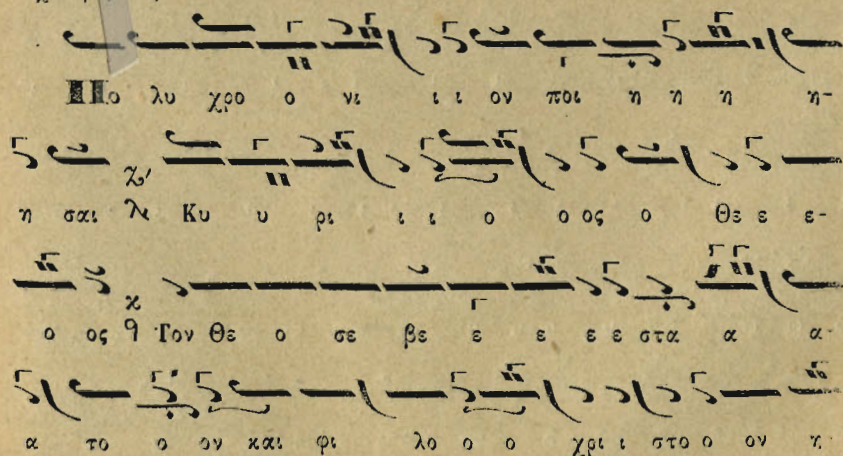 Πο λυ χρο ο νι ι ι ον ποι η η η η-
η σαι Κυ υ ρι ι ι ο ο ος ο Θε ε ε-
ο ος Τον Θε ο σε βε ε ε ε ε στα α α-
α το ο ον και φι λο ο ο χρι ι στο ο ον η-